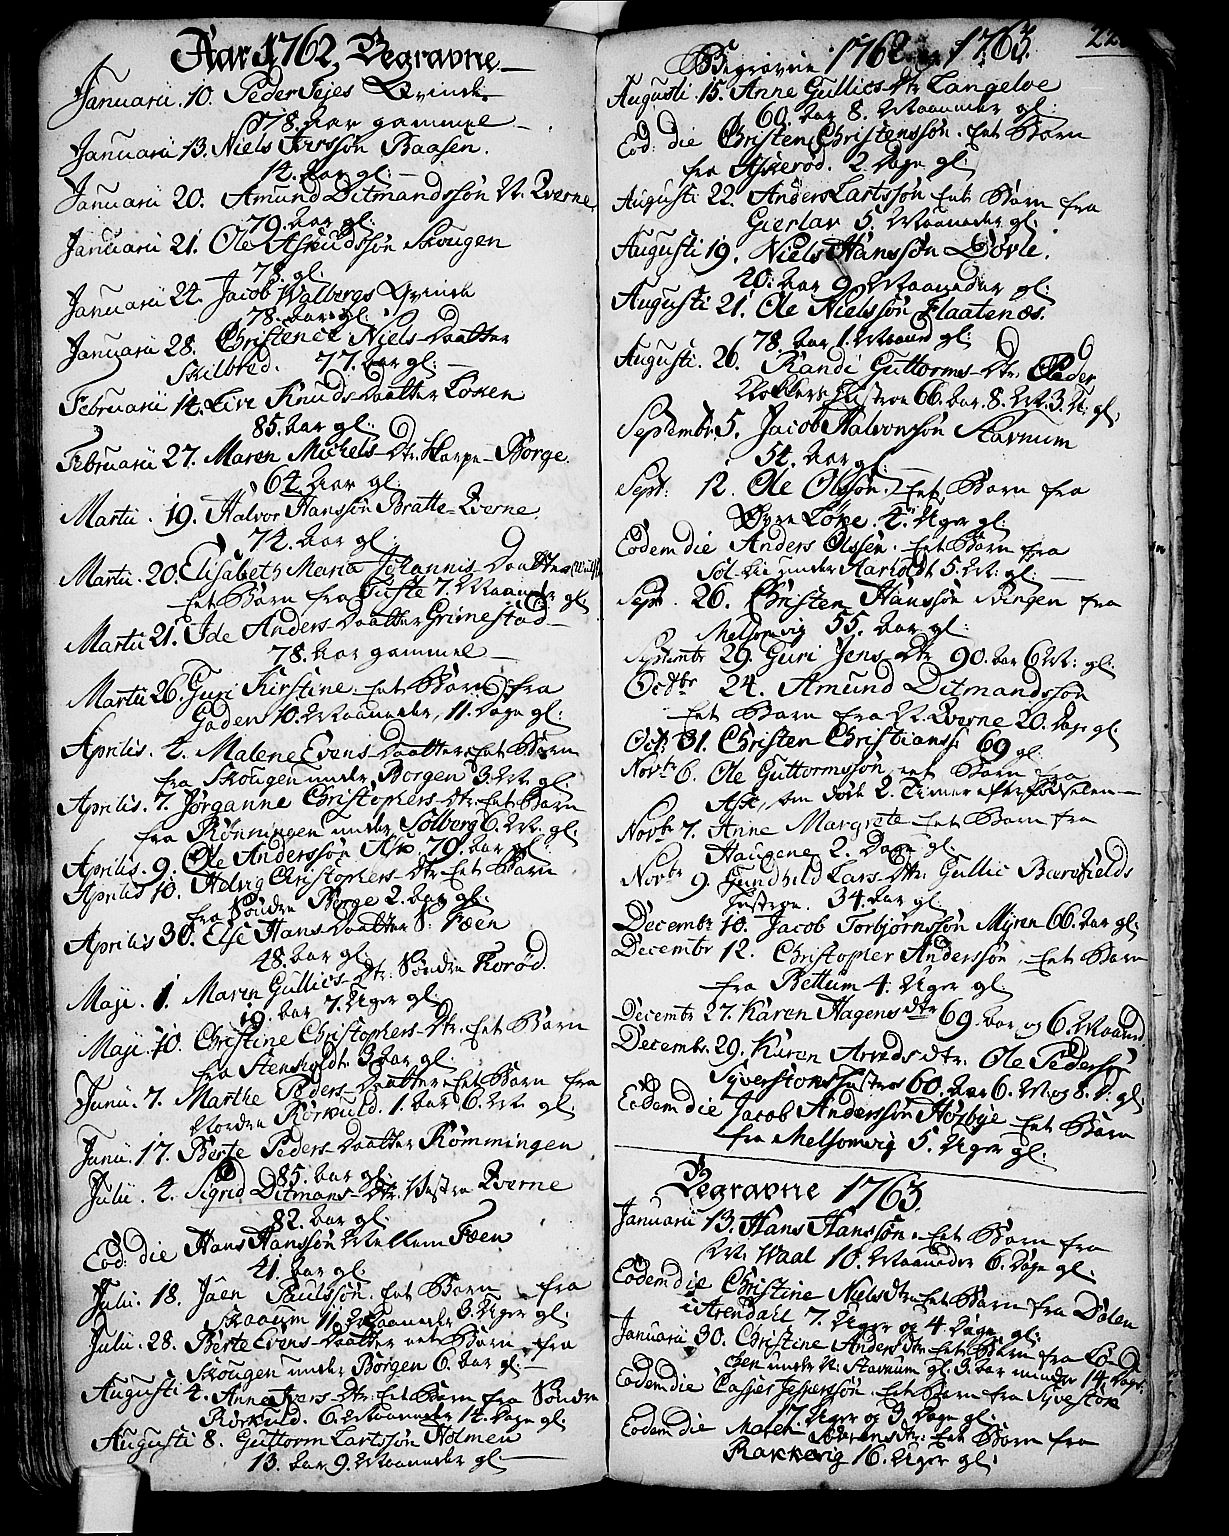 Aar 1762, Begravne
Januarii. 10. Peder Sejes Qvinde
78. Aar gammel
Januarii 13. Niels Iversøn Baasen.
14. Aar gl:
Januarii 20. Amund Ditmandssøn V. Qverne
79. Aar gl:
Januarii 21. Ole Asmundssøn Skougen
78. gl:
Januarii 24. Jacob Walbergs Qvinde
78. Aar gl:
Januarii 28. Christence Niels Daatter
Skilbred. 77. Aar gl:
Februarii 14. Live Knuds Daatter Løken
85. Aar gl:
Februarii 27. Maren Michels Dtr. Borge.
64. Aar gl:
Martii. 19. Halvor Hanssøn Bratte-Qverne.
74. Aar gl:
Martii. 20. Elisabeth Maria Johannis Daatter
Eet Barn fra 7. Maaneder gl:
Martii 21. Ide Anders Daatter Grimestad
78. Aar gammel
Martii 26. Guri Kirstine. Eet Barn fra
Gaden 10. Maaneder, 11. Dage gl:
Aprilis. 4. Malene Evens Daatter Eet Barn
fra Skougen under Borgen 3. gl:
Aprilis. 7. Jørganne Christophers Dtr. Eet Barn
fra Rønningen under Solberg 6. gl:
Aprilis. 9. Ole Anderssøn Ask 79. Aar gl:
Aprilis 10. Helvig Christophers Dtr. Eet Barn
fra Søndre Borge 2. Aar gl:
Aprilis 30. Else Hans Daatter S: Fæen
48. Aar gl:
Maji. 1. Maren Gullics Dtr: Søndre Rorød.
19. Aar 7. Uger gl:
Maji. 10. Christine Christophers Dtr. Eet Barn
fra Stensholdt 3 Aar gl:
Junii. 7. Marthe Peders Daatter Eet Barn fra
Nordre Rørkuld. 1. Aar 6. gl:
Junii. 17. Berte Peders Daatter Rømmingen
85. Aar gl:
Julii. 4. Sigrid Ditmans Dtr. Vestre Qverne
82. Aar gl:
Eod: die Hans Hanssøn Mellem Fæen
41. Aar gl:
Julii. 18. Jaen Paulssøn. Eet Barn fra
11. Maaneder 3. Uger gl:
Julii. 28. Berte Evens Daatter eet Barn fra
Skougen under Borgen 6. Aar gl:
Augusti 4. Anne Dtr. Eet Barn fra Søndre
Rørkuld. 6. Maaneder 14. Dage gl:
Augusti 8. Guttorm Lartssøn Holmen
13. Aar 9. Maaneder gl:
Begravne 1762 og 1763.
Augusti. 15. Anne Gullics Dtr Langeloe
60. Aar 8. Maaneder gl:
Eod: die Christen Christenssøn. Eet Barn
fra Askerød. 2 Dage gl:
Augusti 22. Anders Lartssøn Eet Barn fra
Gierløv 5. Maaneder gl:
Augusti 19. Niels Hanssøn Døvle.
40. Aar 9. Maaneder gl:
Augusti 21. Ole Nielssøn Flaatenæs.
78. Aar 1. Maaned gl:
Augusti. 26. Randi Guttorms Dtr. Peder
Hustroe 66. Aar. 8. M. 3. U. gl:
Septembr 5. Jacob Halvorssøn Stavnum
54. Aar gl:
Sept: 12. Ole Olssøn. Eet Barn fra
Øvre Løke. 4. Uger gl:
Eodem die Anders Olssen. Eet Barn fra
under 5. gl:
Septr. 26. Christen Hanssøn Svingen fra
Melsomvig 55. Aar gl:
Septembr 29. Guri Jens Dtr 90. Aar 6 M: gl:
Octobr 24. Amund Ditmandssøn
Eet Barn fra V. Qverne 20. Dage gl:
Oct: 31. Christen Christianss: 69 gl:
Novbr 6. Ole Guttormssøn. eet Barn fra
Ask, døde 2. Timer efter Fødselen
Novbr 7. Anne Margrete Eet Barn fra
Haugene 2. Dage gl:
Novbr 9. Gundhild Lars Dtr. Gullic
Hustroe. 34. Aar gl:
Decembr 10. Jacob Torbjørnssøn Myren 66. Aar gl:
Decembr 12. Christopher Anderssøn. Eet Barn
fra Bettum 4. Uger gl:
Decembr 27. Karen Hagens dtr 69. Aar og 6. Maaned
Decembr. 29. Karen Arveds dtr: Ole Pederssøn
Syverstons Hustroe 60. Aar 6. M. og 8. D. gl:
Eodem die Jacob Anderssøn Eet Barn
fra Melsomvig 5. Uger gl:
Begravne 1763.
Januarii 13. Hans Hanssøn. Eet Barn fra
V. Waal 10. Maaneder 6. Dage gl:
Eodem die Christine Niels Dtr Eet Barn fra Dalen
i Arendal 7. Uger og 4 Dage gl:
Januarii 30. Christine Anders Dtr. Eet Barn fra
under N. Stavnum gl: 3. Aar minder 14. Dage.
Eodem die Casper Jesperssøn. Eet Barn fra
17. Uger og 3. Dage gl:
Eodem die Maren Sørens dtr: Eet Barn fra
Rakkevig 16. Uger gl: